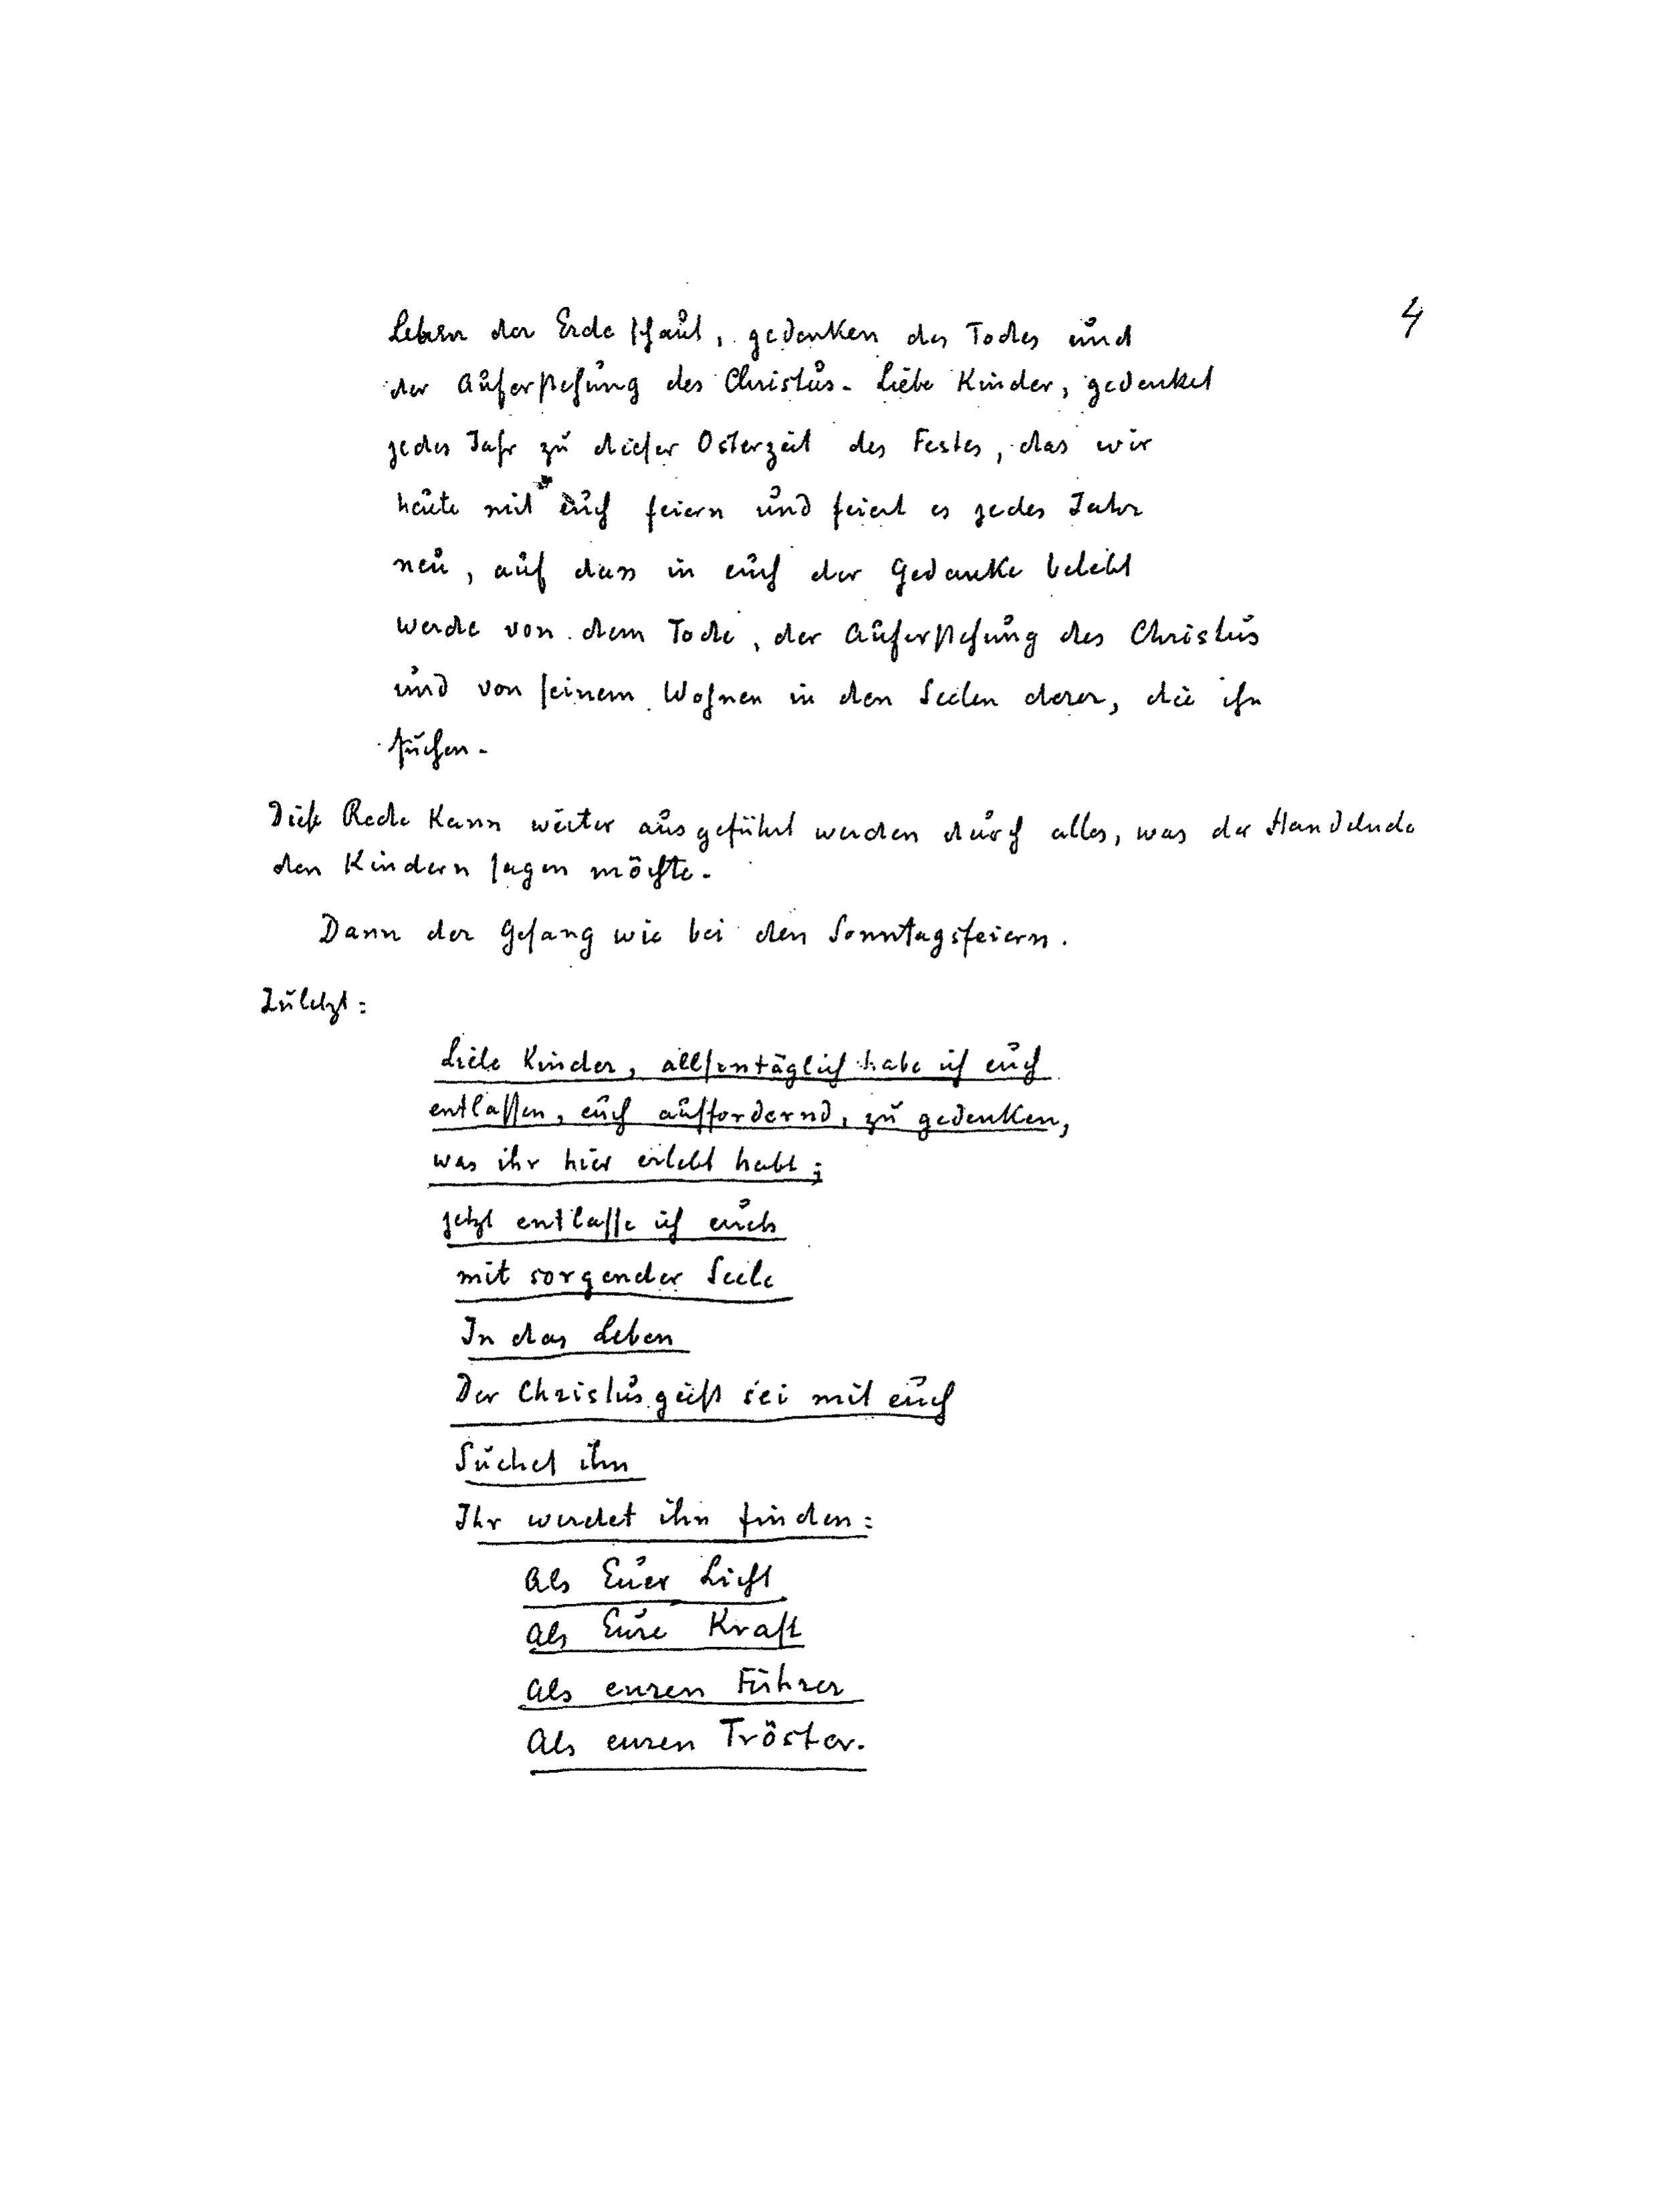 4
Leben der Erde schaut, gedenken des Todes und
der Auferstehung des Christus. Liebe Kinder, gedenket
jedes Jahr zu dieser Osterzeit des Festes, das wir
heute mit euch feiern und feiert es jedes Jahr
neu, auf dass in euch der Gedanke belebt
werde von dem Tode, der Auferstehung des Christus
und von seinem Wohnen in den Seelen derer, die ihn
suchen.
Diese Rede kann weiter ausgeführt werden durch alles, was der Handelnde
den Kindern sagen möchte.
Dann der Gesang wie bei den Sonntagsfeiern.
Zuletzt:
Liebe Kinder, allsontäglich habe ich euch
entlassen, euch auffordernd, zu gedenken,
was ihr hier erlebt habt;
jetzt entlasse ich euch
mit sorgender Seele
In das Leben
Der Christusgeist sei mit euch
Suchet ihn
Ihr werdet ihn finden:
Als Euer Licht
Als Eure Kraft
Als euren Führer
Als euren Tröster.